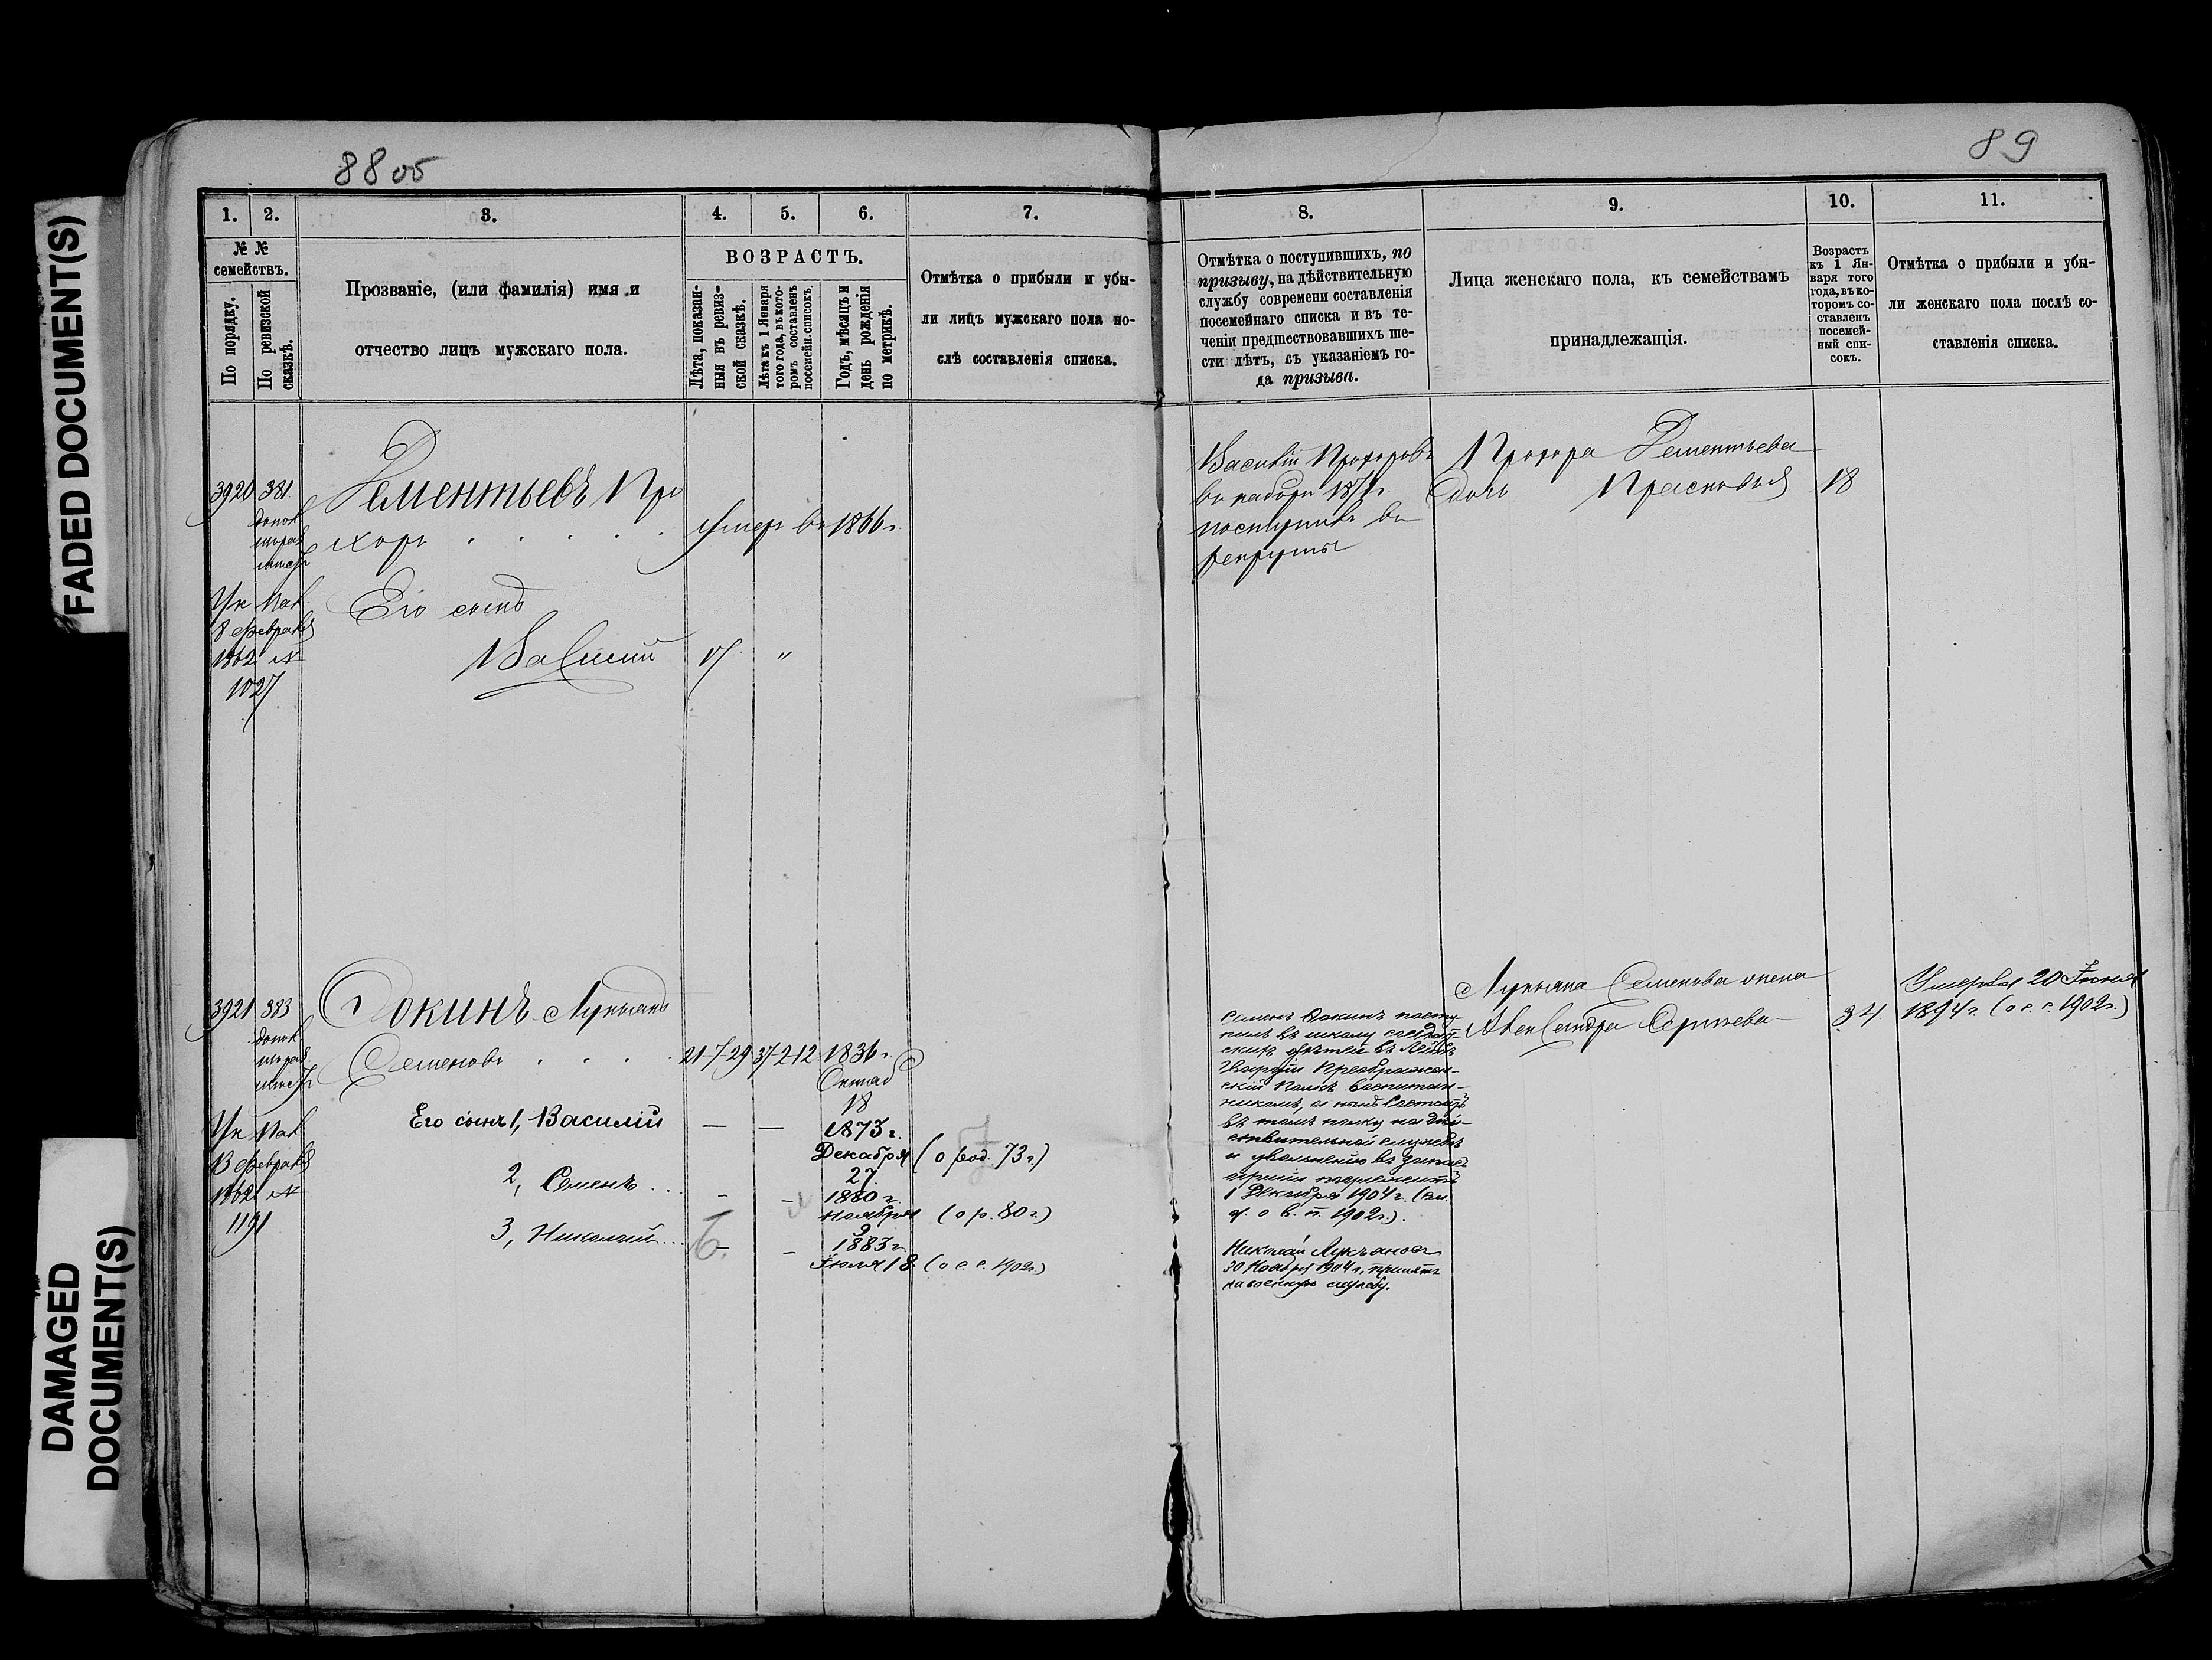 FADED DOCUMENT(S)
DAMAGED
DOCUMENT(S)
88 об
1. 2. 3. 4. 5. 6. 7.
№ №
семействъ.
По порядку.
По ревизской
сказкѣ.
Прозваніе, (или фамилія) имя и
отчество лицъ мужскаго пола.
ВОЗРАСТЪ.
Лѣта, показан-
ныя въ ревиз-
ской сказкѣ.
Лѣта къ 1 Января
того года, въ кото-
ромъ составленъ
посемейн. списокъ.
Годъ, мѣсяцъ и
день рожденія
по метрикѣ.
Отмѣтка о прибыли и убы-
ли лицъ мужскаго пола по-
слѣ составленія списка.
3920 381
Дементьевъ Про
хоръ . . . . . умеръ въ 1866 г.
Ук Пал
8 февраля
1862 №
1027
Его сынъ
Василий 17 "
3921 383
Докинъ Лукьянъ
Семеновъ . . . 21-7-29 37-2-12 1836 г.
Октяб
18
Ук Пал
13 февраля
1862 №
1191
Его сынъ 1, Василій — — 1873 г.
Декабря (о род. 73 г.)
27
2, Семенъ . . - - 1880 г.
Ноября (о р. 80 г.)
9
3, Николай . . - - 1883 г.
Іюля 18 (о с. с. 1902 г.)
89
8. 9. 10. 11.
Отмѣтка о поступившихъ, по
призыву, на дѣйствительную
службу современи составленія
посемейнаго списка и въ те-
ченіи предшествовавшихъ ше-
сти лѣтъ, съ указаніемъ го-
да призыва.
Лица женскаго пола, къ семействамъ
принадлежащія.
Возрастъ
къ 1 Ян-
варя того
года, въ ко-
торомъ со-
ставленъ
посемей-
ный спи-
сокъ.
Отмѣтка о прибыли и убы-
ли женскаго пола послѣ со-
ставленія списка.
Василій Прохоровъ
въ наборъ 1871 г.
поступилъ въ
рекруты
Прохора Дементьева
дочь Прасковья 18
Семенъ Докинъ посту-
пилъ въ школу солдат-
скихъ дѣтей въ Лейбъ
Гвардіи Преображен-
скій Полкъ воспитан-
никомъ, а нынѣ состоитъ
въ томъ полку на дѣй-
ствительной службѣ
и увольненію въ запас
арміи подлежитъ
1 Декабря 1904 г. (вх.
д. о в. п. 1902 г.).
Николай Лукьяновъ
30 Ноября 1904 г. принятъ
на военную службу.
Лукьяна Семенова жена
Александра Сергѣева 34
Умерла 20 Іюня
1894 г. (о с. с. 1902 г.)